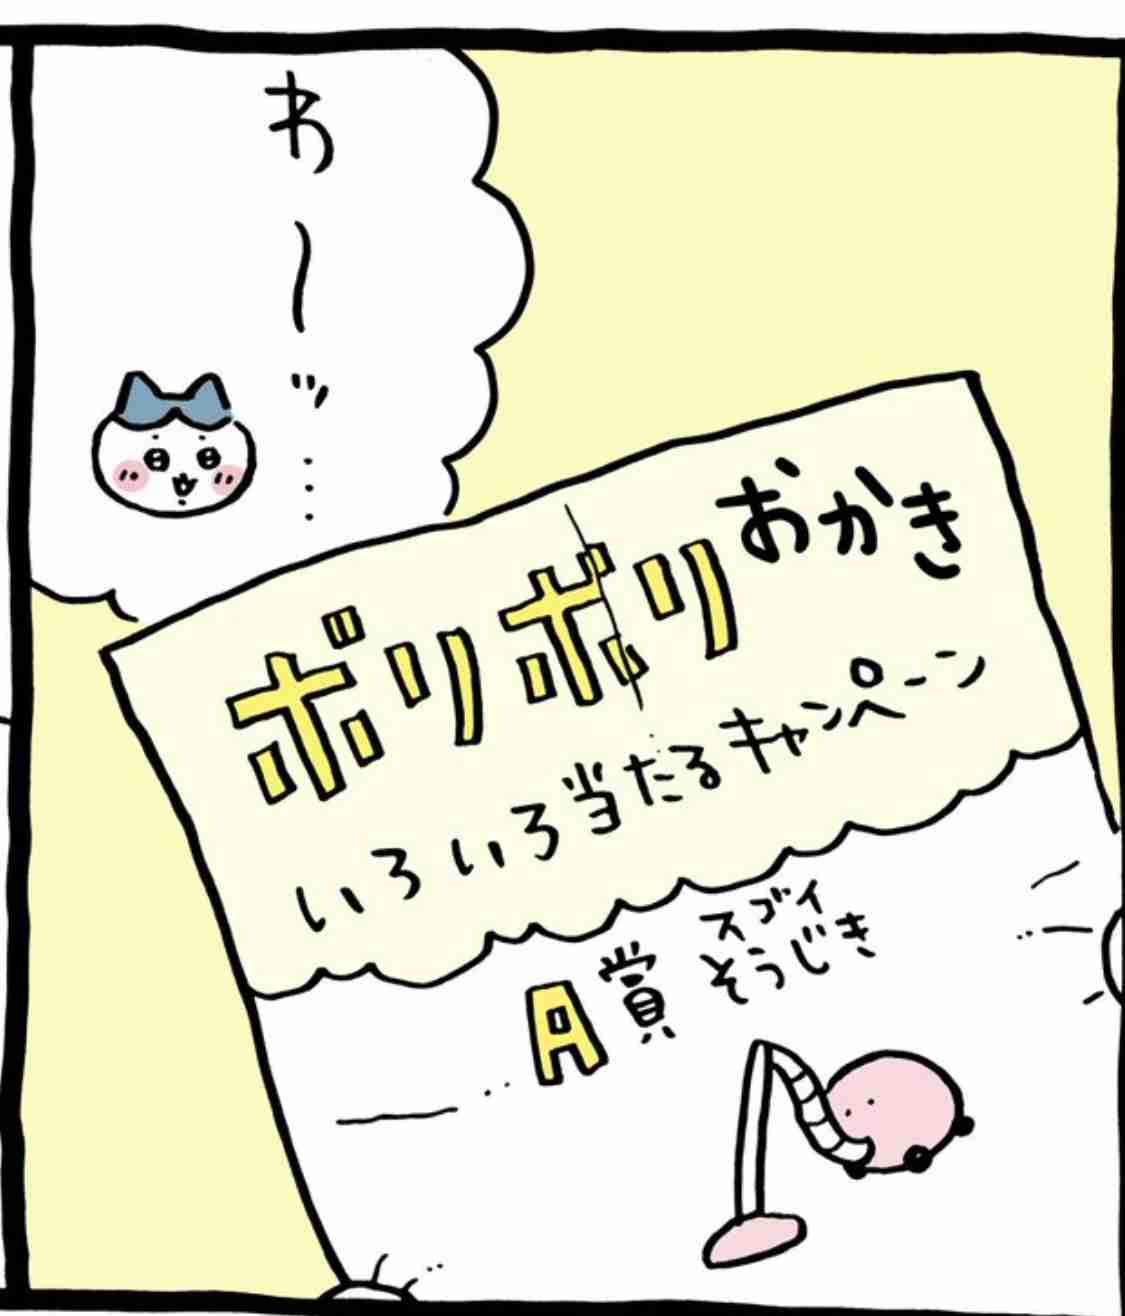 わ〜ッ…
ボリボリおかき
いろいろ当たるキャンペーン
A賞
スゴイ
そうじき